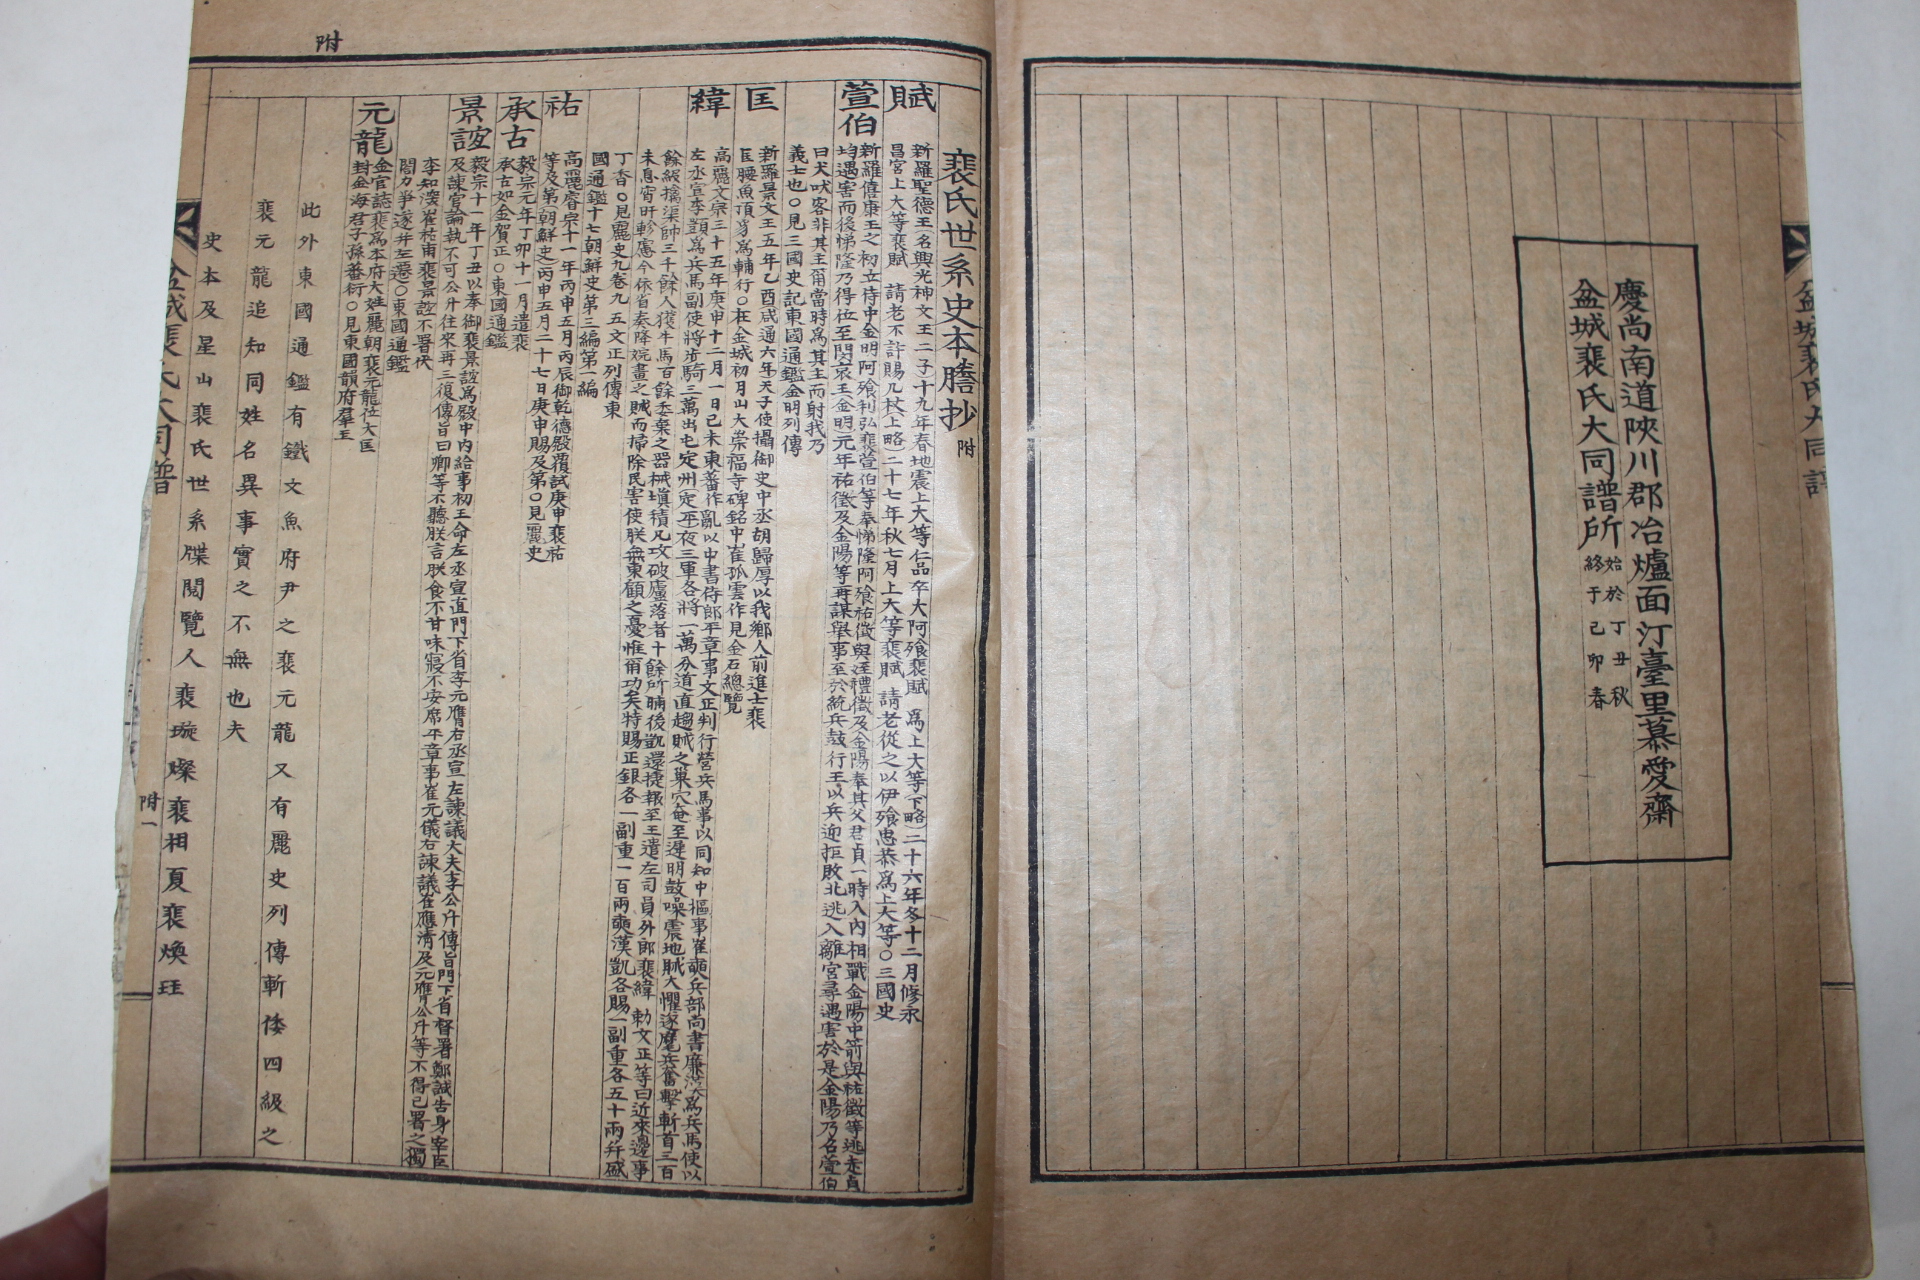 盆城裵氏大同譜
慶尚南道陜川郡冶爐面汀臺里慕愛齋
盆城裵氏大同譜所
始於丁丑秋
終于己卯春
附
裵氏世系史本謄抄 附
賦
新羅聖德王名興光神文王二子十九年春地震上大等仁品卒大阿飱裵賦 爲上大等(下略)二十六年冬十二月修永
昌宮上大等裵賦 請老不許賜几杖(上略)二十七年秋七月上大等裵賦 請老從之以伊飱思恭爲上大等○三國史
萱伯
新羅僖康王之初立侍中金明阿飱利弘裵萱伯等奉悌隆阿飱祐徵與姪禮徵及金陽奉其父君貞一時入內相戰金陽中箭與祐徵等逃走貞
均遇害而後悌隆乃得位至閔哀王金明元年祐徵及金陽等再謀擧事至於統兵鼓行王以兵迎拒敗北逃入離宮尋遇害於是金陽乃名萱伯
曰犬吠客非其主爾當時爲其主而射我乃
義士也○見三國史記東國通鑑金明列傳
匡
新羅景文王五年乙酉咸通六年天子使攝御史中丞胡歸厚以我鄉人前進士裵
匡腰魚頂豸爲輔行○在金城初月山大崇福寺碑銘中崔孤雲作見金石總覽
緯
高麗文宗三十五年庚申十二月一日己未東蕃作亂以中書侍郎平章事文正判行營兵馬事以同知中樞事崔奭兵部尚書廉漢爲兵馬使以
左丞宣李顗爲兵馬副使將步騎三萬出屯定州定平夜三軍各將一萬分道直趨賊之巢穴奄至遲明鼓噪震地賊大懼逐麾兵奮擊斬首三百
餘級擒渠帥三千餘人獲牛馬百餘委棄之器械塡積凡攻破廬落者十餘所晡後凱還捷報至王遣左司員外郎裵緯 勅文正等曰近來邊事
未息宵旰軫慮今依省奏降婉畫之賊而掃除民害使朕無東顧之憂惟爾功矣特賜正銀各一副重一百兩奭漢凱各賜一副重各五十兩幷盛
丁香○見麗史九卷九 五文正列傳東
國通鑑十七朝鮮史第三編第一編
祐
高麗睿宗十一年丙申五月丙辰御乾德殿覆試庚申裵祐
等及第(朝鮮史)丙申五月二十七日庚申賜及第○見麗史
承古
毅宗元年丁卯十一月遣裵
承古如金賀正○東國通鑑
景誼
毅宗十一年丁丑以奉御裵景誼爲殿中內給事初王命左丞宣直門下省李元膺右丞宣左諫議大夫李公升傳旨門下省督署鄭諴告身宰臣
及諫官論執不可公升往來再三復傳旨曰卿等不聽朕言朕食不甘味寢不安席平章事崔允儀右諫議崔應淸及元膺公升等不得已署之獨
李知深崔祐甫裵景誼不署伏
閤力爭遂幷左遷○東國通鑑
元龍
金官誌裵爲本府大姓麗朝裵元龍仕大匡
封金海君子孫蕃衍○見東國韻府羣玉
此外東國通鑑有鐵文魚府尹之裵元龍又有麗史列傳斬倭四級之
裵元龍追知同姓名異事實之不無也夫
史本及星山裵氏世系牒閱覽人裵璇燦裵相夏裵煥珏
盆城裵氏大同譜
附一